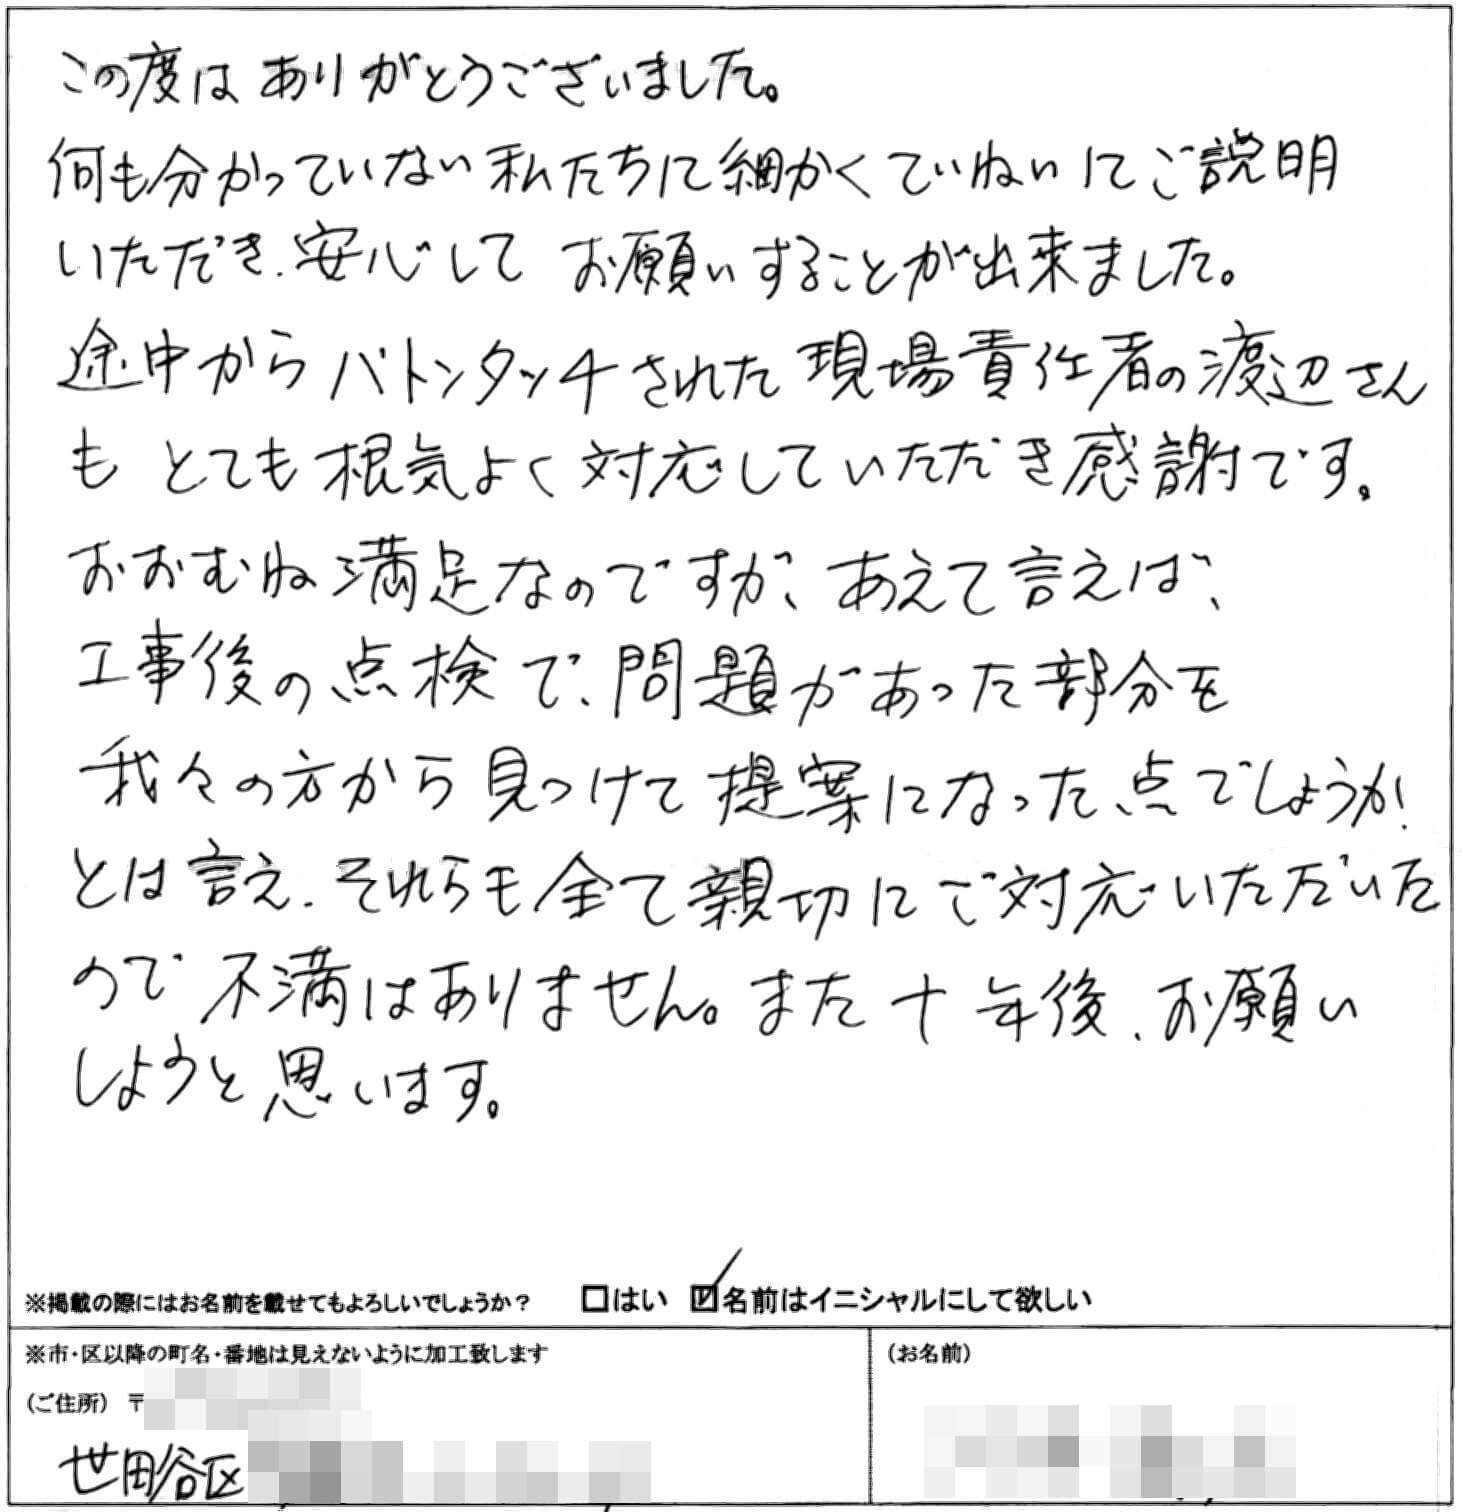 この度は ありがとうございました。
何も分かっていない私たちに細かくていねいにご説明
いただき、安心して お願いすることが出来ました。
途中から バトンタッチされた現場責任者の渡辺さん
も とても根気よく対応していただき感謝です。
おおむね満足なのですが、あえて言えば、
工事後の点検で、問題があった部分を
我々の方から見つけて提案になった点でしょうか!
とは言え、それらも全て親切にご対応いただいた
ので 不満はありません。また十年後、お願い
しようと思います。
※掲載の際にはお名前を載せてもよろしいでしょうか? □はい ☑名前はイニシャルにして欲しい
※市・区以降の町名・番地は見えないように加工致します
(お名前)
(ご住所) 〒
世田谷区